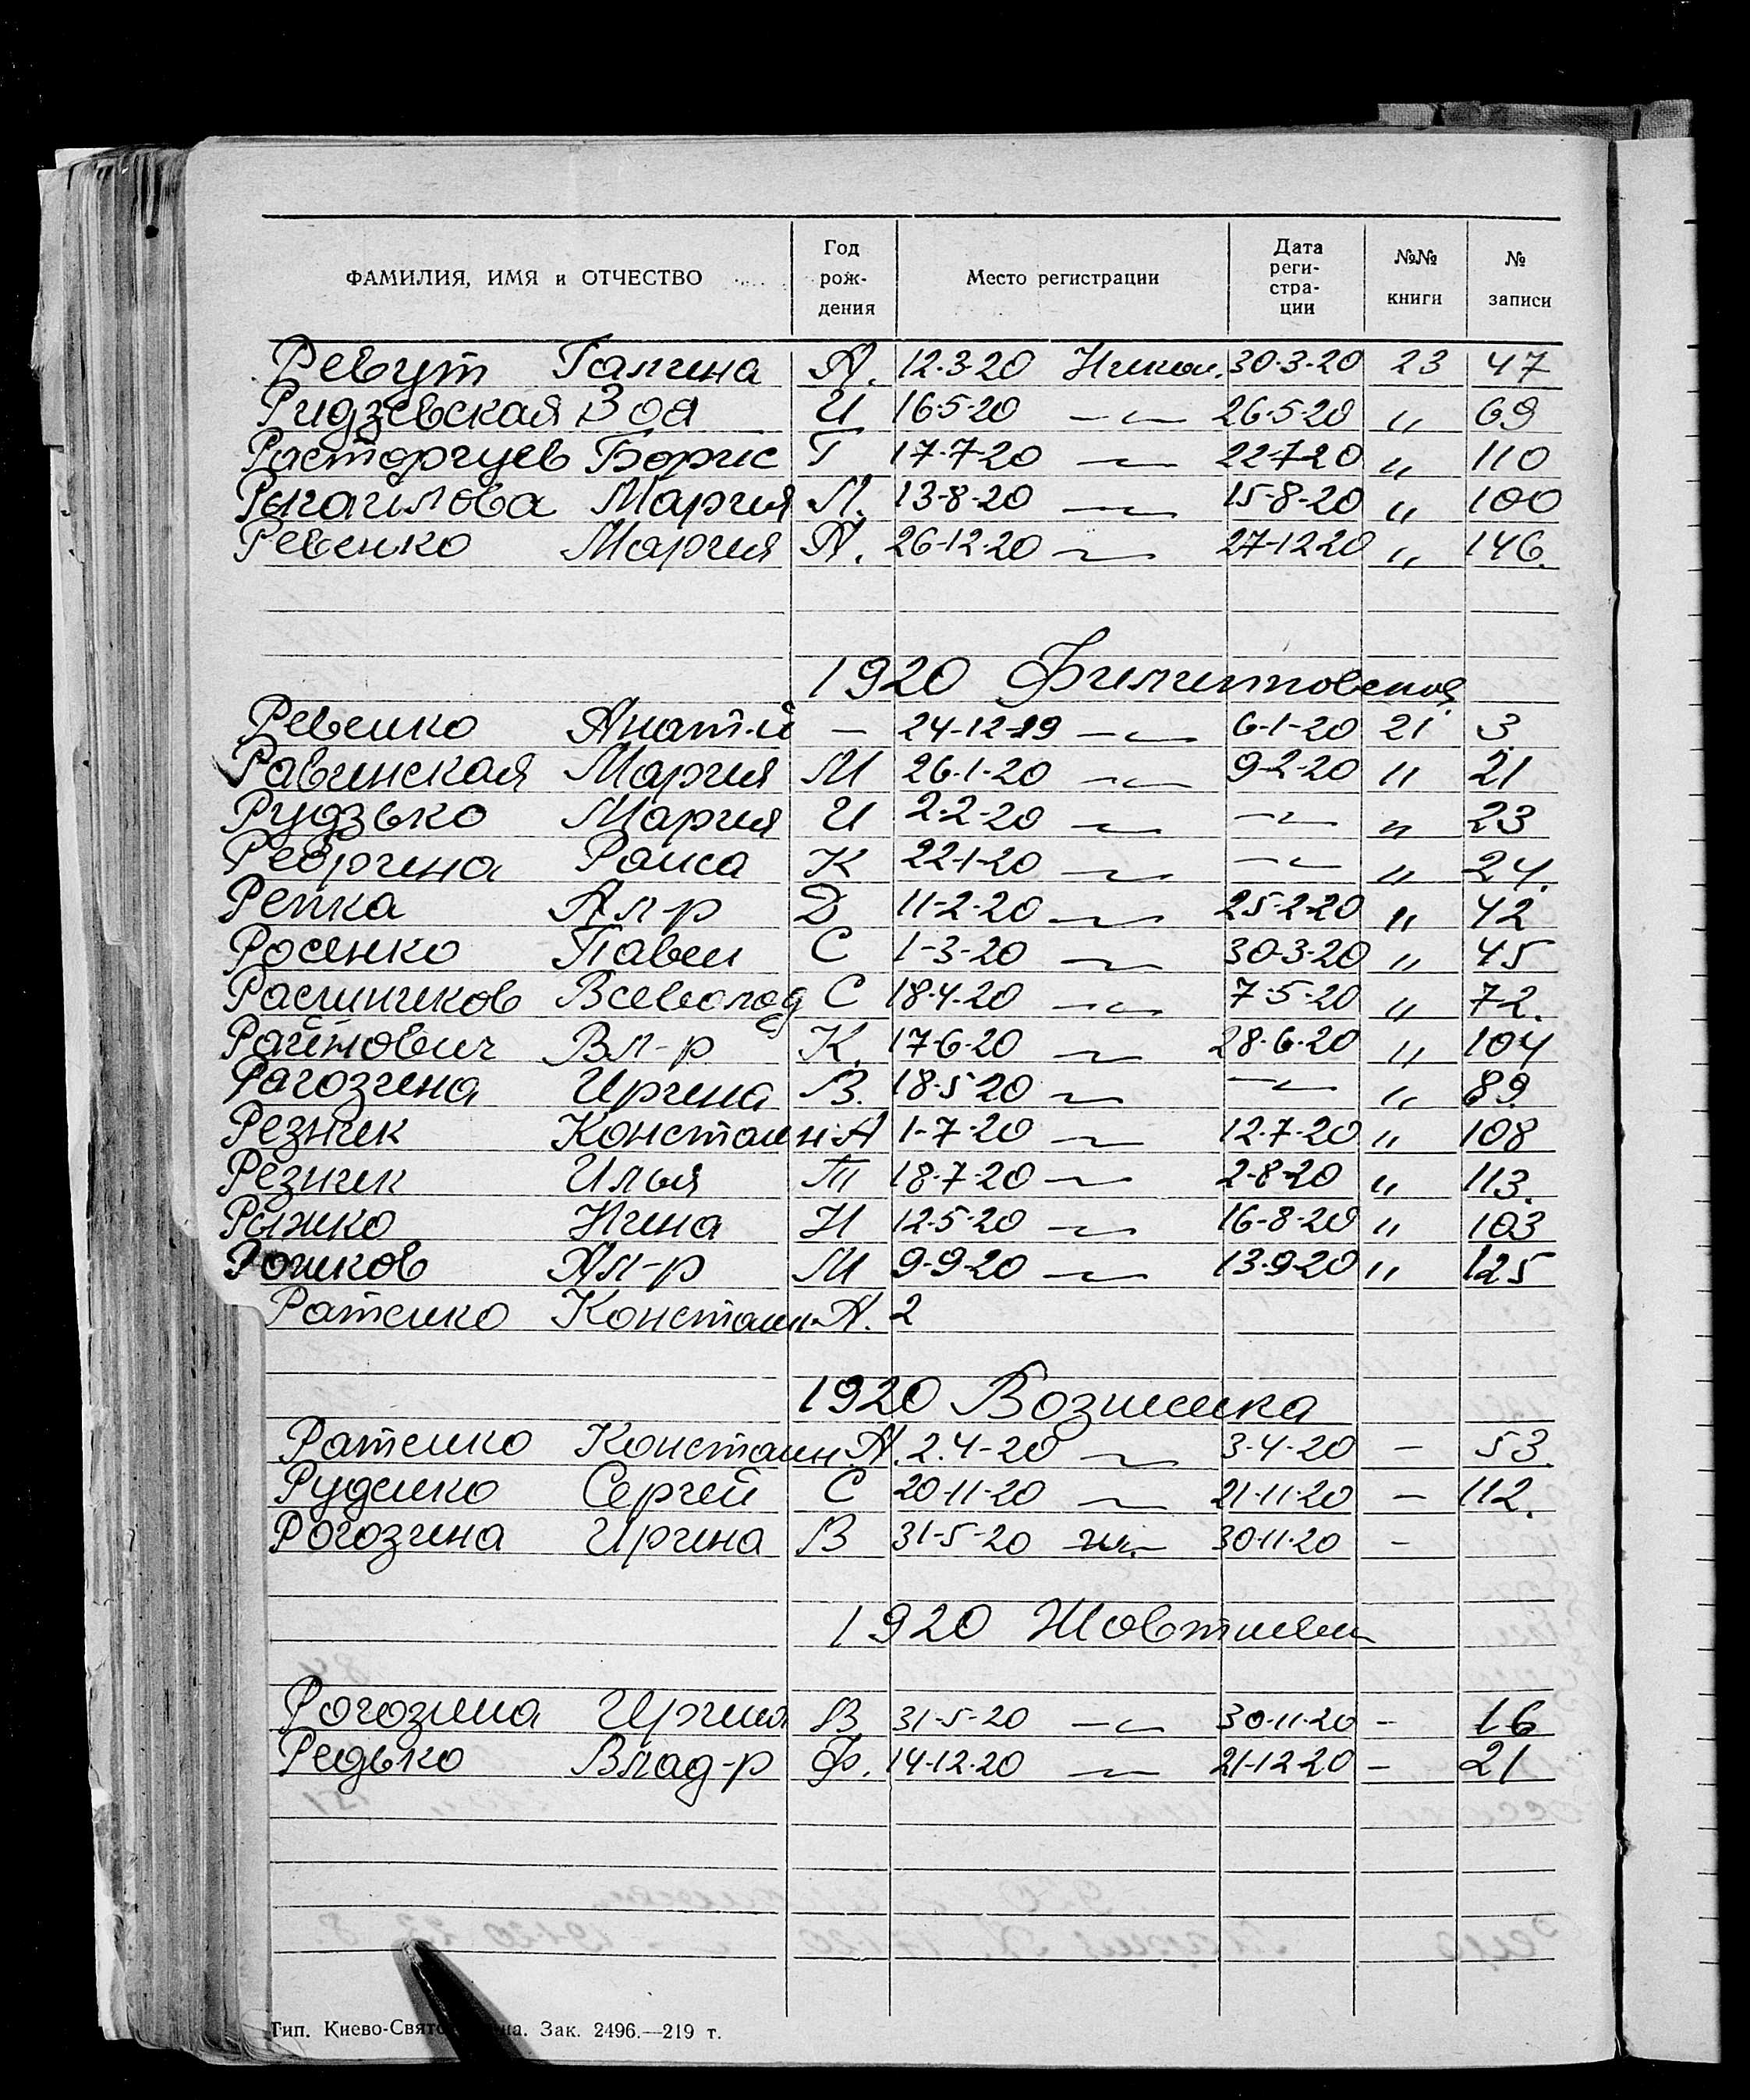 ФАМИЛИЯ, ИМЯ и ОТЧЕСТВО Год рождения Место регистрации Дата регистрации №№ книги № записи
Ревут Галина А. 12.3.20 Никол. 30.3.20 23 47
Ридзевская Зоя И 16.5.20 —〃— 26.5.20 〃 69
Расторгуев Борис Г 17.7.20 —〃— 22.7.20 〃 110
Мария П. 13-8-20 —〃— 15-8-20 〃 100
Ревенко Мария А. 26-12-20 —〃— 27-12-20 〃 146.
1920 Филипповская
Ревенко Анат-й — 24-12-19 —〃— 6-1-20 21 3
Равинская Мария М 26.1.20 —〃— 9-2-20 〃 21
Рудзько Мария И 2-2-20 —〃— —〃— 〃 23
Раиса К 22-1-20 —〃— —〃— 〃 24.
Репка Ал-р Д 11-2-20 —〃— 25-2-20 〃 42
Росенко Павел С 1-3-20 —〃— 30-3-20 〃 45
Всеволод С 18.4.20 —〃— 7-5-20 〃 72.
Вл-р К. 17-6-20 —〃— 28.6.20 〃 104
Рагозина Ирина В. 18.5.20 —〃— —〃— 〃 89
Резник Констан А 1-7-20 —〃— 12.7.20 〃 108
Резник Илья Т 18.7.20 —〃— 2-8-20 〃 113.
Рыжко Нина Н 12.5.20 —〃— 16-8-20 〃 103
Рожков Ал-р М 9-9-20 —〃— 13.9.20 〃 125
Ратенко Констан А. 2
1920
Ратенко Констан А. 2.4-20 —〃— 3-4-20 — 53.
Руденко Сергей С 20-11-20 —〃— 21-11-20 — 112.
Рогозина Ирина В 31-5-20 30-11-20 —
1920
Рогозина Ирина В 31-5-20 —〃— 30-11-20 — 16
Редько Влад-р Ф. 14-12.20 —〃— 21-12-20 — 21
Тип. Киево-Свято на. Зак. 2496.—219 т.